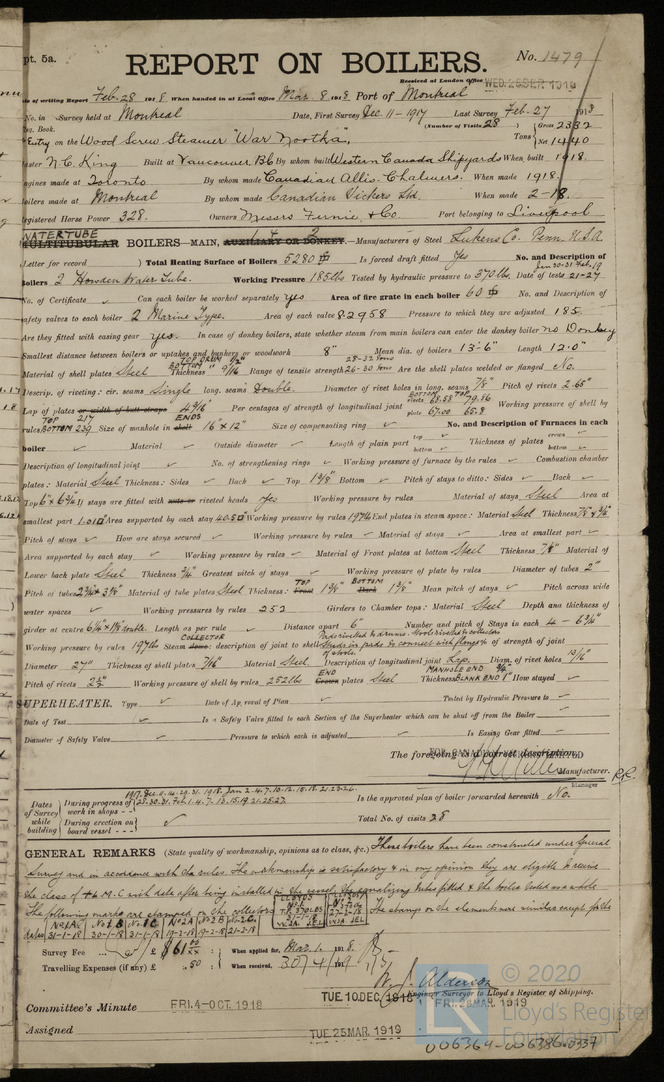 pt. 5a.
REPORT ON BOILERS.
No. 1479
Received at London Office WED. 25 SEP. 1918
of writing Report Feb. 28 1918 When handed in at Local Office Mar. 8 1918 Port of Montreal
No. in Survey held at Montreal Date, First Survey Dec. 11 - 1917 Last Survey Feb. 27 1918
Reg. Book. (Number of Visits 28) Gross 2332
Entry on the Wood Screw Steamer "War Nootka" Tons Net 1440
Master N. C. King Built at Vancouver B.C. By whom built Western Canada Shipyards When built 1918.
Engines made at Toronto By whom made Canadian Allis-Chalmers. When made 1918.
Boilers made at Montreal By whom made Canadian Vickers Ltd. When made 2-18.
Registered Horse Power 328. Owners Messrs Furnie, & Co. Port belonging to Liverpool
WATERTUBE
MULTITUBULAR BOILERS—MAIN, AUXILIARY OR DONKEY.—Manufacturers of Steel Lukens Co. Penn. U.S.A
Letter for record ) Total Heating Surface of Boilers 5280 Is forced draft fitted Yes No. and Description of
Boilers 2 Howden Water Tube. Working Pressure 185 lbs Tested by hydraulic pressure to 370 lbs. Date of tests 21-27
No. of Certificate Can each boiler be worked separately Yes Area of fire grate in each boiler 60 No. and Description of
safety valves to each boiler 2 Marine Type. Area of each valve 8.2958 Pressure to which they are adjusted 185
Are they fitted with easing gear Yes. In case of donkey boilers, state whether steam from main boilers can enter the donkey boiler no Donkey
Smallest distance between boilers or uptakes and bunkers or woodwork 8" Mean dia. of boilers 13'-6" Length 12.0"
Material of shell plates Steel Thickness TOP DRUM 1/2" BOTTOM " 9/16 Range of tensile strength 28-32 tons 26-30 tons Are the shell plates welded or flanged No.
Descrip. of riveting: cir. seams Single long. seams Double. Diameter of rivet holes in long. seams 7/8" Pitch of rivets 2.65"
Lap of plates or width of butt straps 4 9/16" Per centages of strength of longitudinal joint rivets 68.58 79.86 plate 67.00 65.8 Working pressure of shell by
rules TOP 217 BOTTOM 239 Size of manhole in shell ENDS 16" x 12" Size of compensating ring No. and Description of Furnaces in each
boiler Material Outside diameter Length of plain part top bottom Thickness of plates crown bottom
Description of longitudinal joint No. of strengthening rings Working pressure of furnace by the rules Combustion chamber
plates: Material Steel Thickness: Sides Back Top Bottom Pitch of stays to ditto: Sides Back
Top 6" x 6 3/4" If stays are fitted with nuts or riveted heads Yes Working pressure by rules Material of stays Steel Area at
smallest part Area supported by each stay 40.50 Working pressure by rules 197 lb End plates in steam space: Material Steel Thickness
Pitch of stays How are stays secured Working pressure by rules Material of stays Area at smallest part
Area supported by each stay Working pressure by rules Material of Front plates at bottom Steel Thickness 7/8" Material of
Lower back plate Steel Thickness 3/4" Greatest pitch of stays Working pressure of plate by rules Diameter of tubes 2"
Pitch of tubes Material of tube plates Steel Thickness: TOP Front 1 3/8" BOTTOM Back 1 3/8" Mean pitch of stays Pitch across wide
water spaces Working pressures by rules 252 Girders to Chamber tops: Material Steel Depth and thickness of
girder at centre double. Length as per rule Distance apart 6" Number and pitch of Stays in each 4 - 6 3/4"
Working pressure by rules 197 lb Steam COLLECTOR dome: description of joint to shell % of strength of joint
Diameter 27" Thickness of shell plates 7/16" Material Steel Description of longitudinal joint Lap. Diam. of rivet holes 13/16"
Pitch of rivets 2 1/2" Working pressure of shell by rules 252 lb END Crown plates Steel Thickness MANHOLE END BLANK END 1" How stayed
SUPERHEATER. Type Date of Approval of Plan Tested by Hydraulic Pressure to
Date of Test Is a Safety Valve fitted to each Section of the Superheater which can be shut off from the Boiler
Diameter of Safety Valve Pressure to which each is adjusted Is Easing Gear fitted
The foregoing is a correct description,
Manufacturer.
Manager
Dates of Survey while building
During progress of work in shops - - 1917 Dec. 11. 14. 29. 31. 1918 Jan. 2. 4. 7. 10. 12. 15. 18. 21. 23. 26. 28. 30. 31. Feb. 1. 4. 7. 13. 15. 19. 21. 25. 27.
Is the approved plan of boiler forwarded herewith No.
During erection on board vessel - - -
Total No. of visits 28
GENERAL REMARKS (State quality of workmanship, opinions as to class, &c.) These boilers have been constructed under Special
Survey and in accordance with the rules. The workmanship is satisfactory & in my opinion they are eligible to receive
the class of + L.M.C with date after being installed in the vessel, the equalizing tubes fitted & the boiler tested as a whole
The following marks are stamped on the collectors The stamps on the elements are similar except for the
dates No 1 A 31-1-18 No 1 B 30-1-18 No 1 C 31-1-18 No 2 A 19-2-18 No 2 B 19-2-18 No 2 C 21-2-18
LLOYDS No 1 T.P. 370 LBS W.J.A.
Survey Fee ... £ $61 00 When applied for, Mar. 1. 1918
Travelling Expenses (if any) £ .50 When received, 30/4/191
W. J. Alderson
Engineer Surveyor to Lloyd's Register of Shipping.
Committee's Minute FRI. 4-OCT. 1918 TUE. 10 DEC. 1918 FRI. 28 MAR. 1919
Assigned TUE. 25 MAR. 1919
© 2020
Lloyd's Register
Foundation
LR
006364-006386-0337